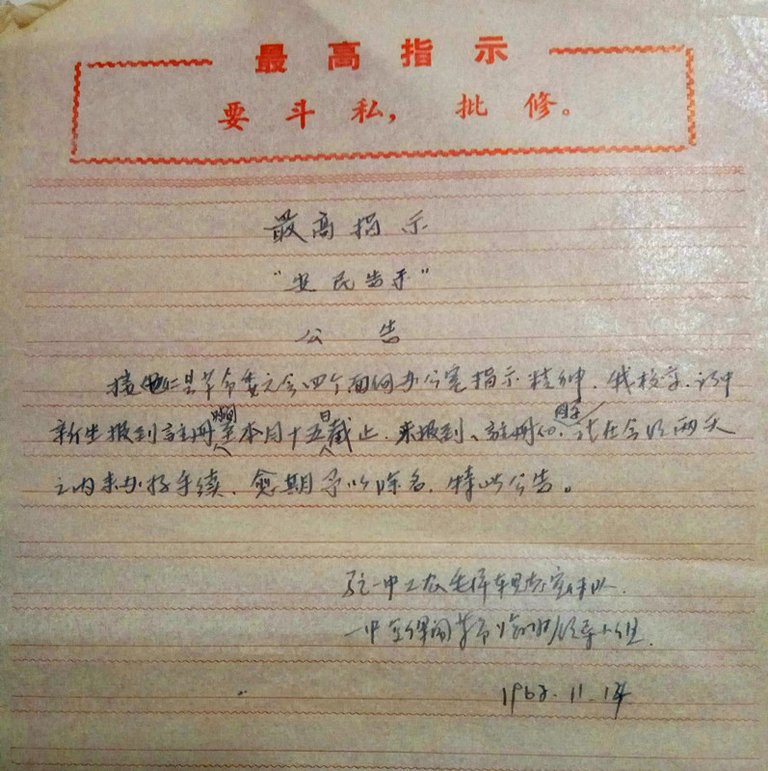 最高指示
要斗私，批修。
最高指示
"安民告示"
公告
接 仁县革命委员会四个面向办公室指示精神，我校高、初中
新生报到註册时间至本月十五日截止，未报到、註册的同学，请在今明两天
之内来办好手续，愈期予以除名，特此公告。
驻一中工农毛泽东思想宣传队
一中 革命 领导小组
11.14